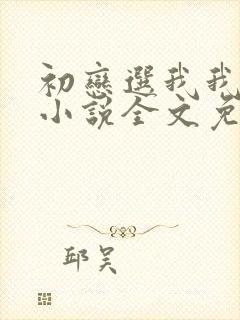 初戀選我我
小說全文免
邱吴